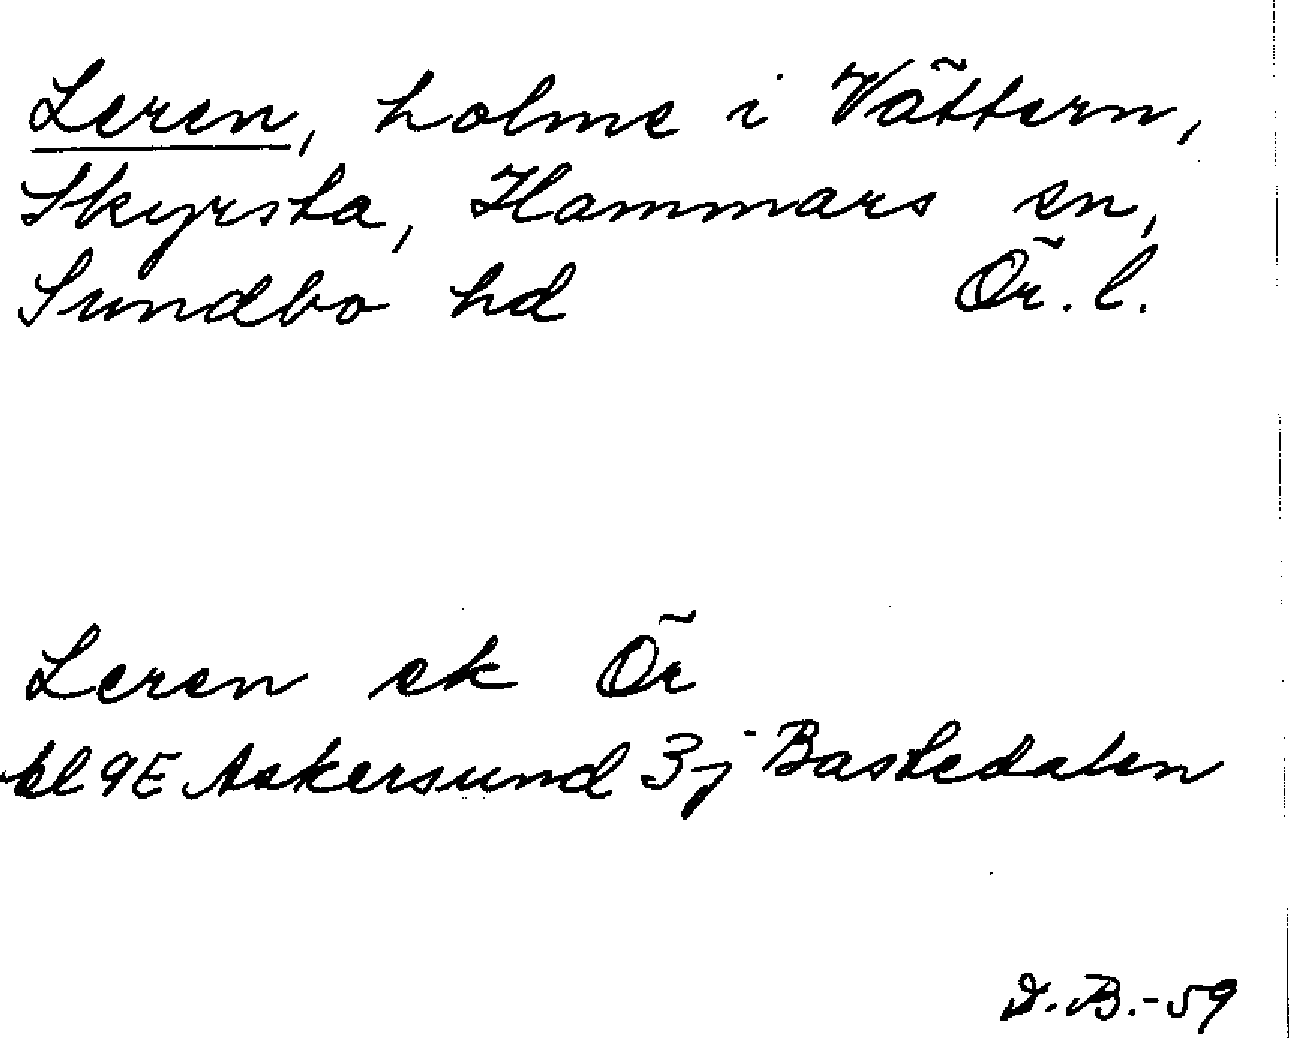 Leren, holme i Vättern,
Skyrsta, Hammars sn,
Sundbo hd Ör. l.
Leren ek Ör
bl 9E Askersund 3j Bastedalen
D.B.-59